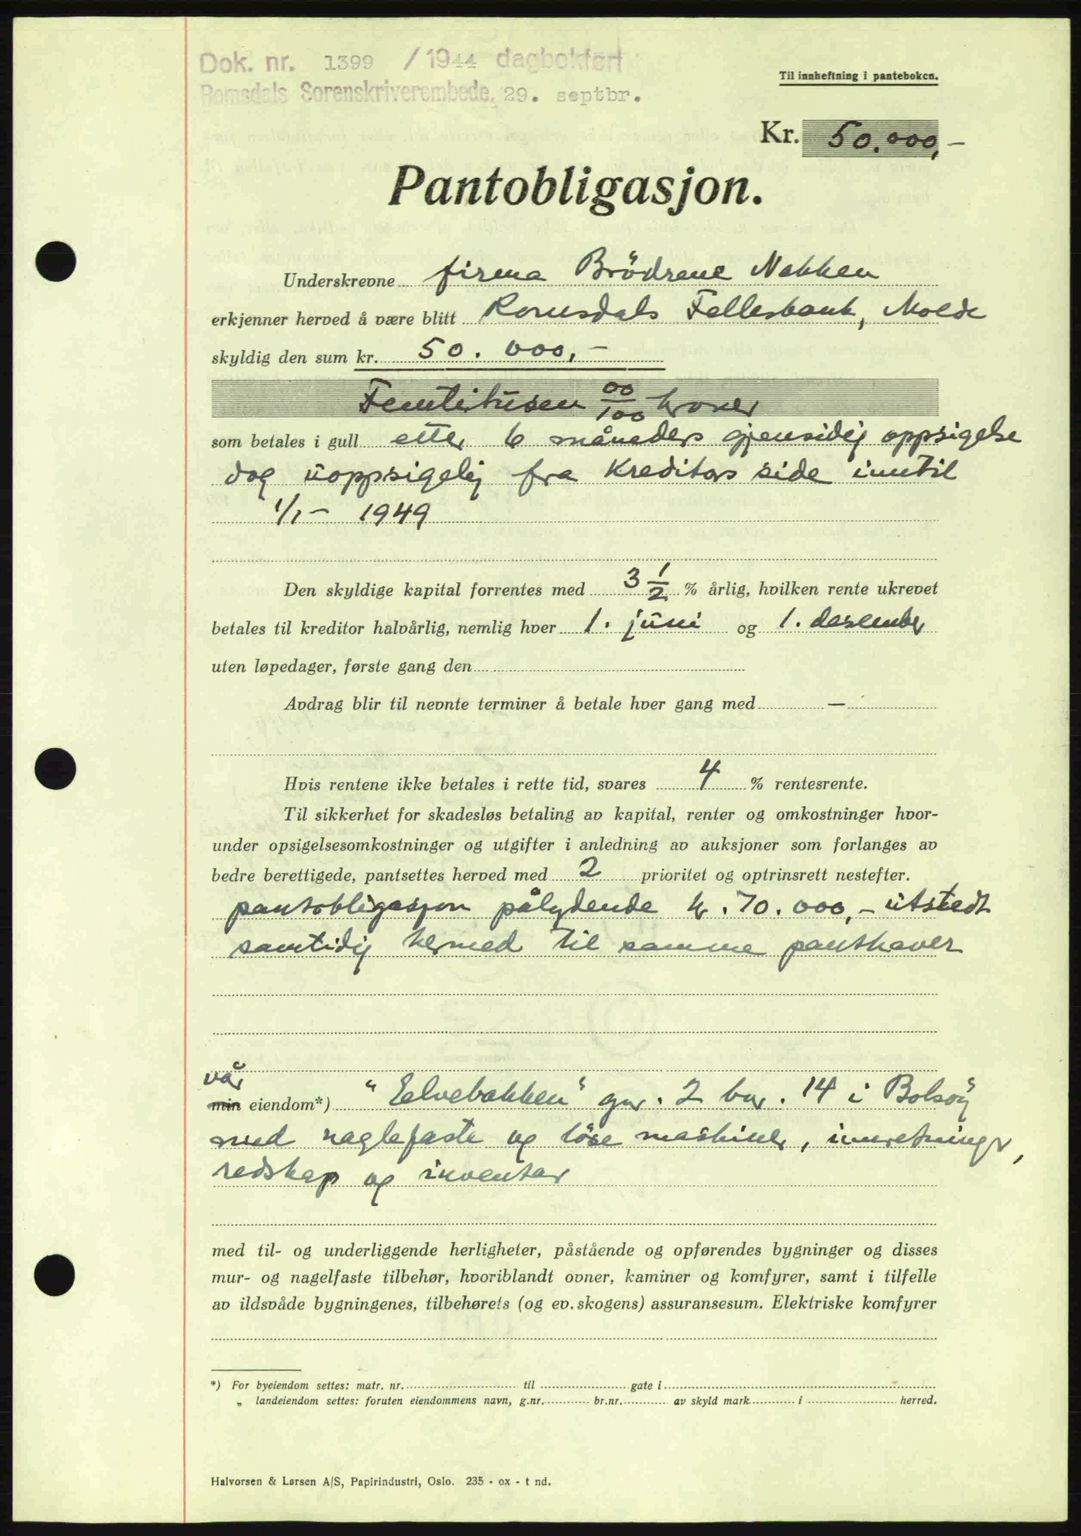 Dok. nr. 1399 / 1944 dagbokført
Romsdals Sorenskriverembede, 29. septbr.
Til innheftning i panteboken.
Kr. 50.000,-
Pantobligasjon.
Underskrevne firma Brödrene Nakken
erkjenner herved å være blitt Romsdals Fellesbank, Molde
skyldig den sum kr. 50.000,-
Femtitusen 00/100 kroner
som betales i gull etter 6 måneders gjensidig oppsigelse
dog uoppsigelig fra kreditors side inntil
1/1- 1949
Den skyldige kapital forrentes med 3 1/2 % årlig, hvilken rente ukrevet
betales til kreditor halvårlig, nemlig hver 1. juni og 1. desember
uten løpedager, første gang den
Avdrag blir til nevnte terminer å betale hver gang med —
Hvis rentene ikke betales i rette tid, svares 4 % rentesrente.
Til sikkerhet for skadesløs betaling av kapital, renter og omkostninger hvor-
under opsigelsesomkostninger og utgifter i anledning av auksjoner som forlanges av
bedre berettigede, pantsettes herved med 2 prioritet og optrinsrett nestefter.
pantobligasjon pålydende kr. 70.000,- utstedt
samtidig hermed til samme panthaver
vår
min eiendom*) "Eelvebakken" gnr. 2 bnr. 14 i Bolsöy
med naglefaste og löse maskiner, innretninger,
redskap og inventar
med til- og underliggende herligheter, påstående og opførendes bygninger og disses
mur- og nagelfaste tilbehør, hvoriblandt ovner, kaminer og komfyrer, samt i tilfelle
av ildsvåde bygningenes, tilbehørets (og ev. skogens) assuransesum. Elektriske komfyrer
*) For byeiendom settes: matr. nr. til gate i
„ landeiendom settes: foruten eiendommens navn, g.nr. br.nr. av skyld mark i herred.
Halvorsen & Larsen A/S, Papirindustri, Oslo. 235 - ox - t nd.